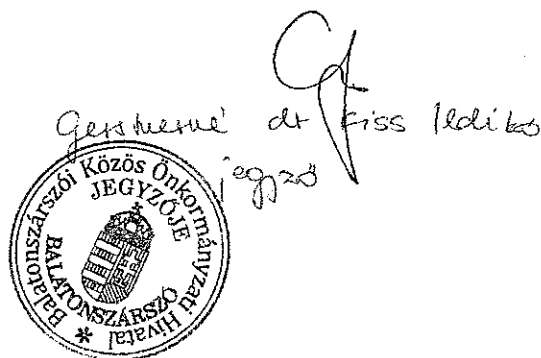 Gerstnerné dr Kiss Ildikó
jegyző
Balatonszárszói Közös Önkormányzati Hivatal
JEGYZŐJE
BALATONSZÁRSZÓ